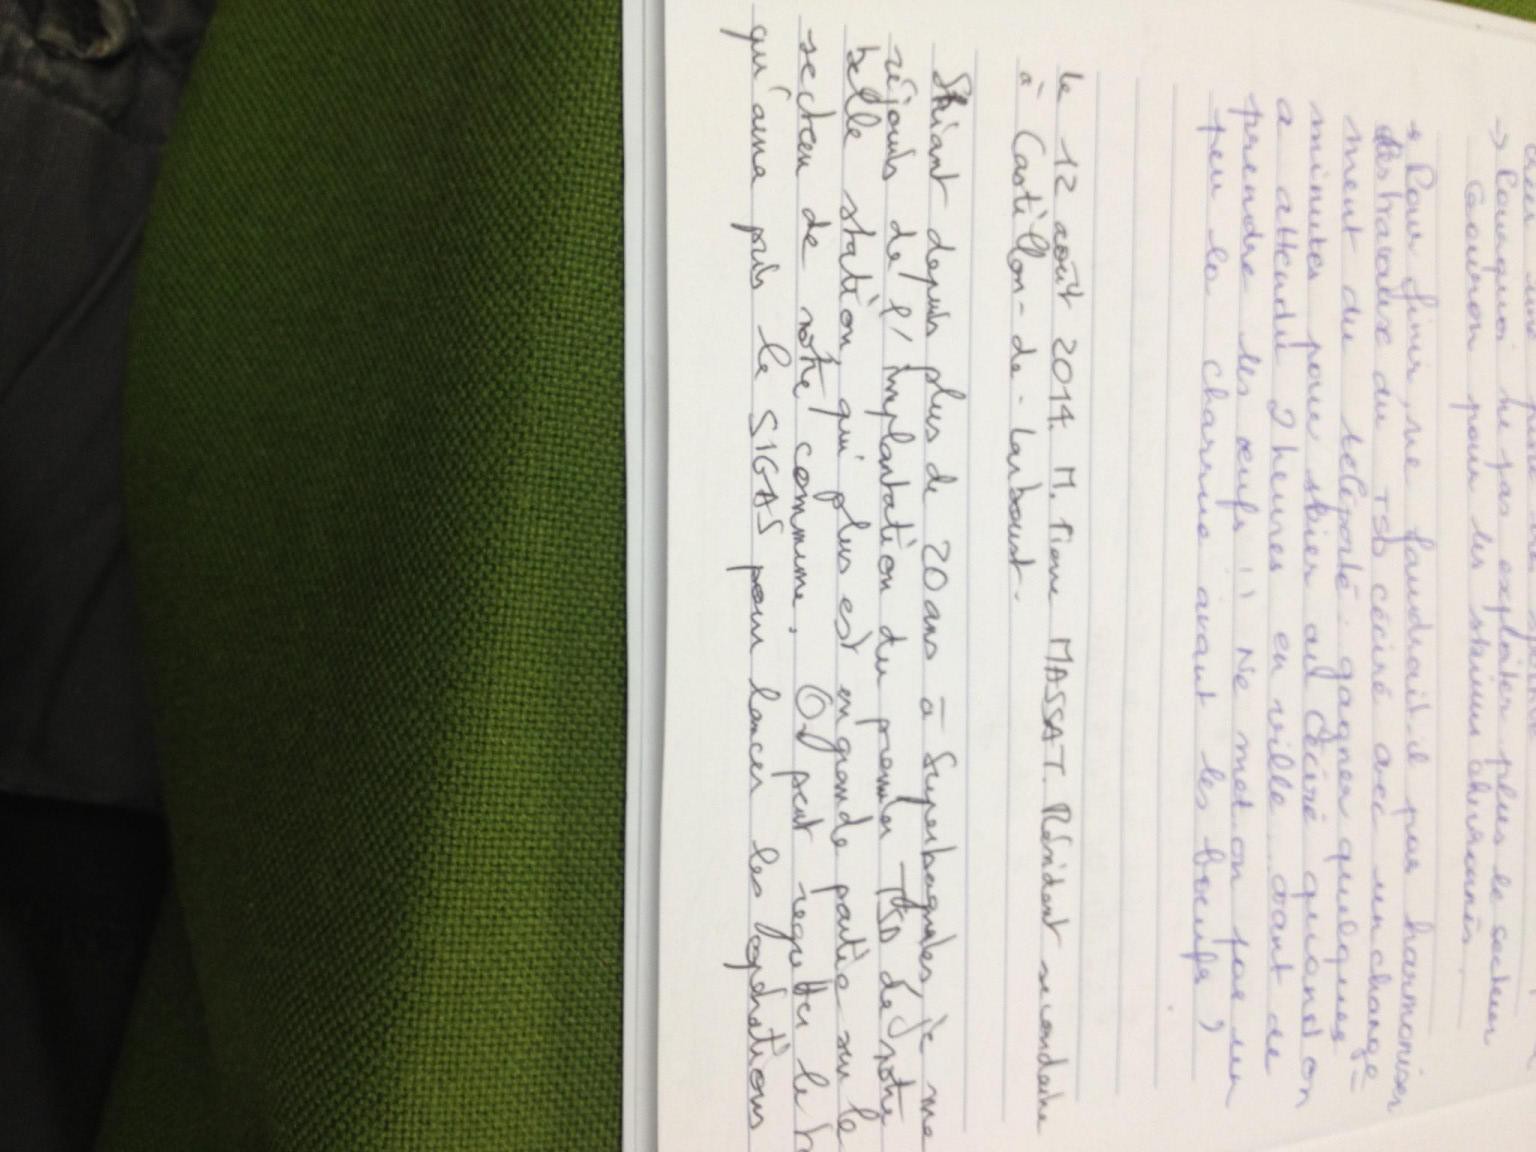 → Pourquoi ne pas exploiter plus le secteur
Couiron pour les skieurs chevronnés.
+ Pour finir, ne faudrait-il pas harmoniser
les travaux du TSD céciré avec un change-
ment du téléporté : gagner quelques
minutes pour skier au Céciré quand on
a attendu 2 heures en ville avant de
prendre les œufs !! Ne met on pas un
peu la charrue avant les boeufs ?
Le 12 août 2014. M. Pierre MASSAT. Résident secondaire
à Castillon-de-Larboust.
Skiant depuis plus de 20 ans à Superbagnères, je me
réjouis de l'implantation du premier TSD de notre
belle station, qui plus est en grande partie sur le
secteur de notre commune. On peut regretter le
qu'aura pris le SIGAS pour lancer les opérations